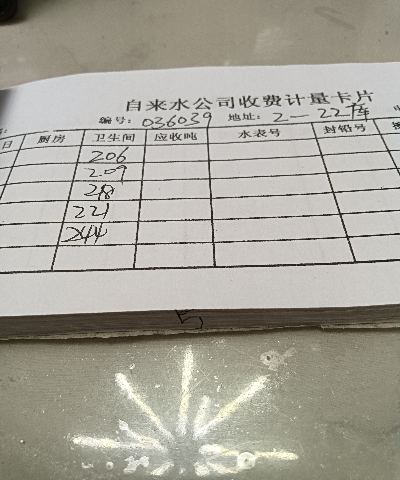 自来水公司收费计量卡片
编号: 036039 地址: 2-22库
日 厨房 卫生间 应收吨 水表号 封铅号
206
2.09
218
221
244
5